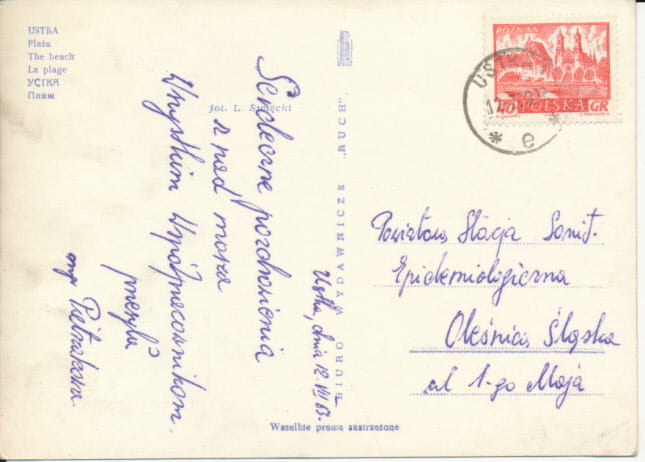 USTKA
Plaża
The beach
La plage
УСТКА
Пляж
fot. L. Święcki
BIURO WYDAWNICZE „RUCH”
Wszelkie prawa zastrzeżone
POZNAŃ
POLSKA GR
USTKA
e
Serdeczne pozdrowienia
z nad morza
Wszystkim Współpracownikom
przesyła
mgr Pietrakowa
Ustka, dnia 12 VII 63.
Powiatowa Stacja Sanit.
Epidemiologiczna
Oleśnica Śląska
ul 1-go Maja